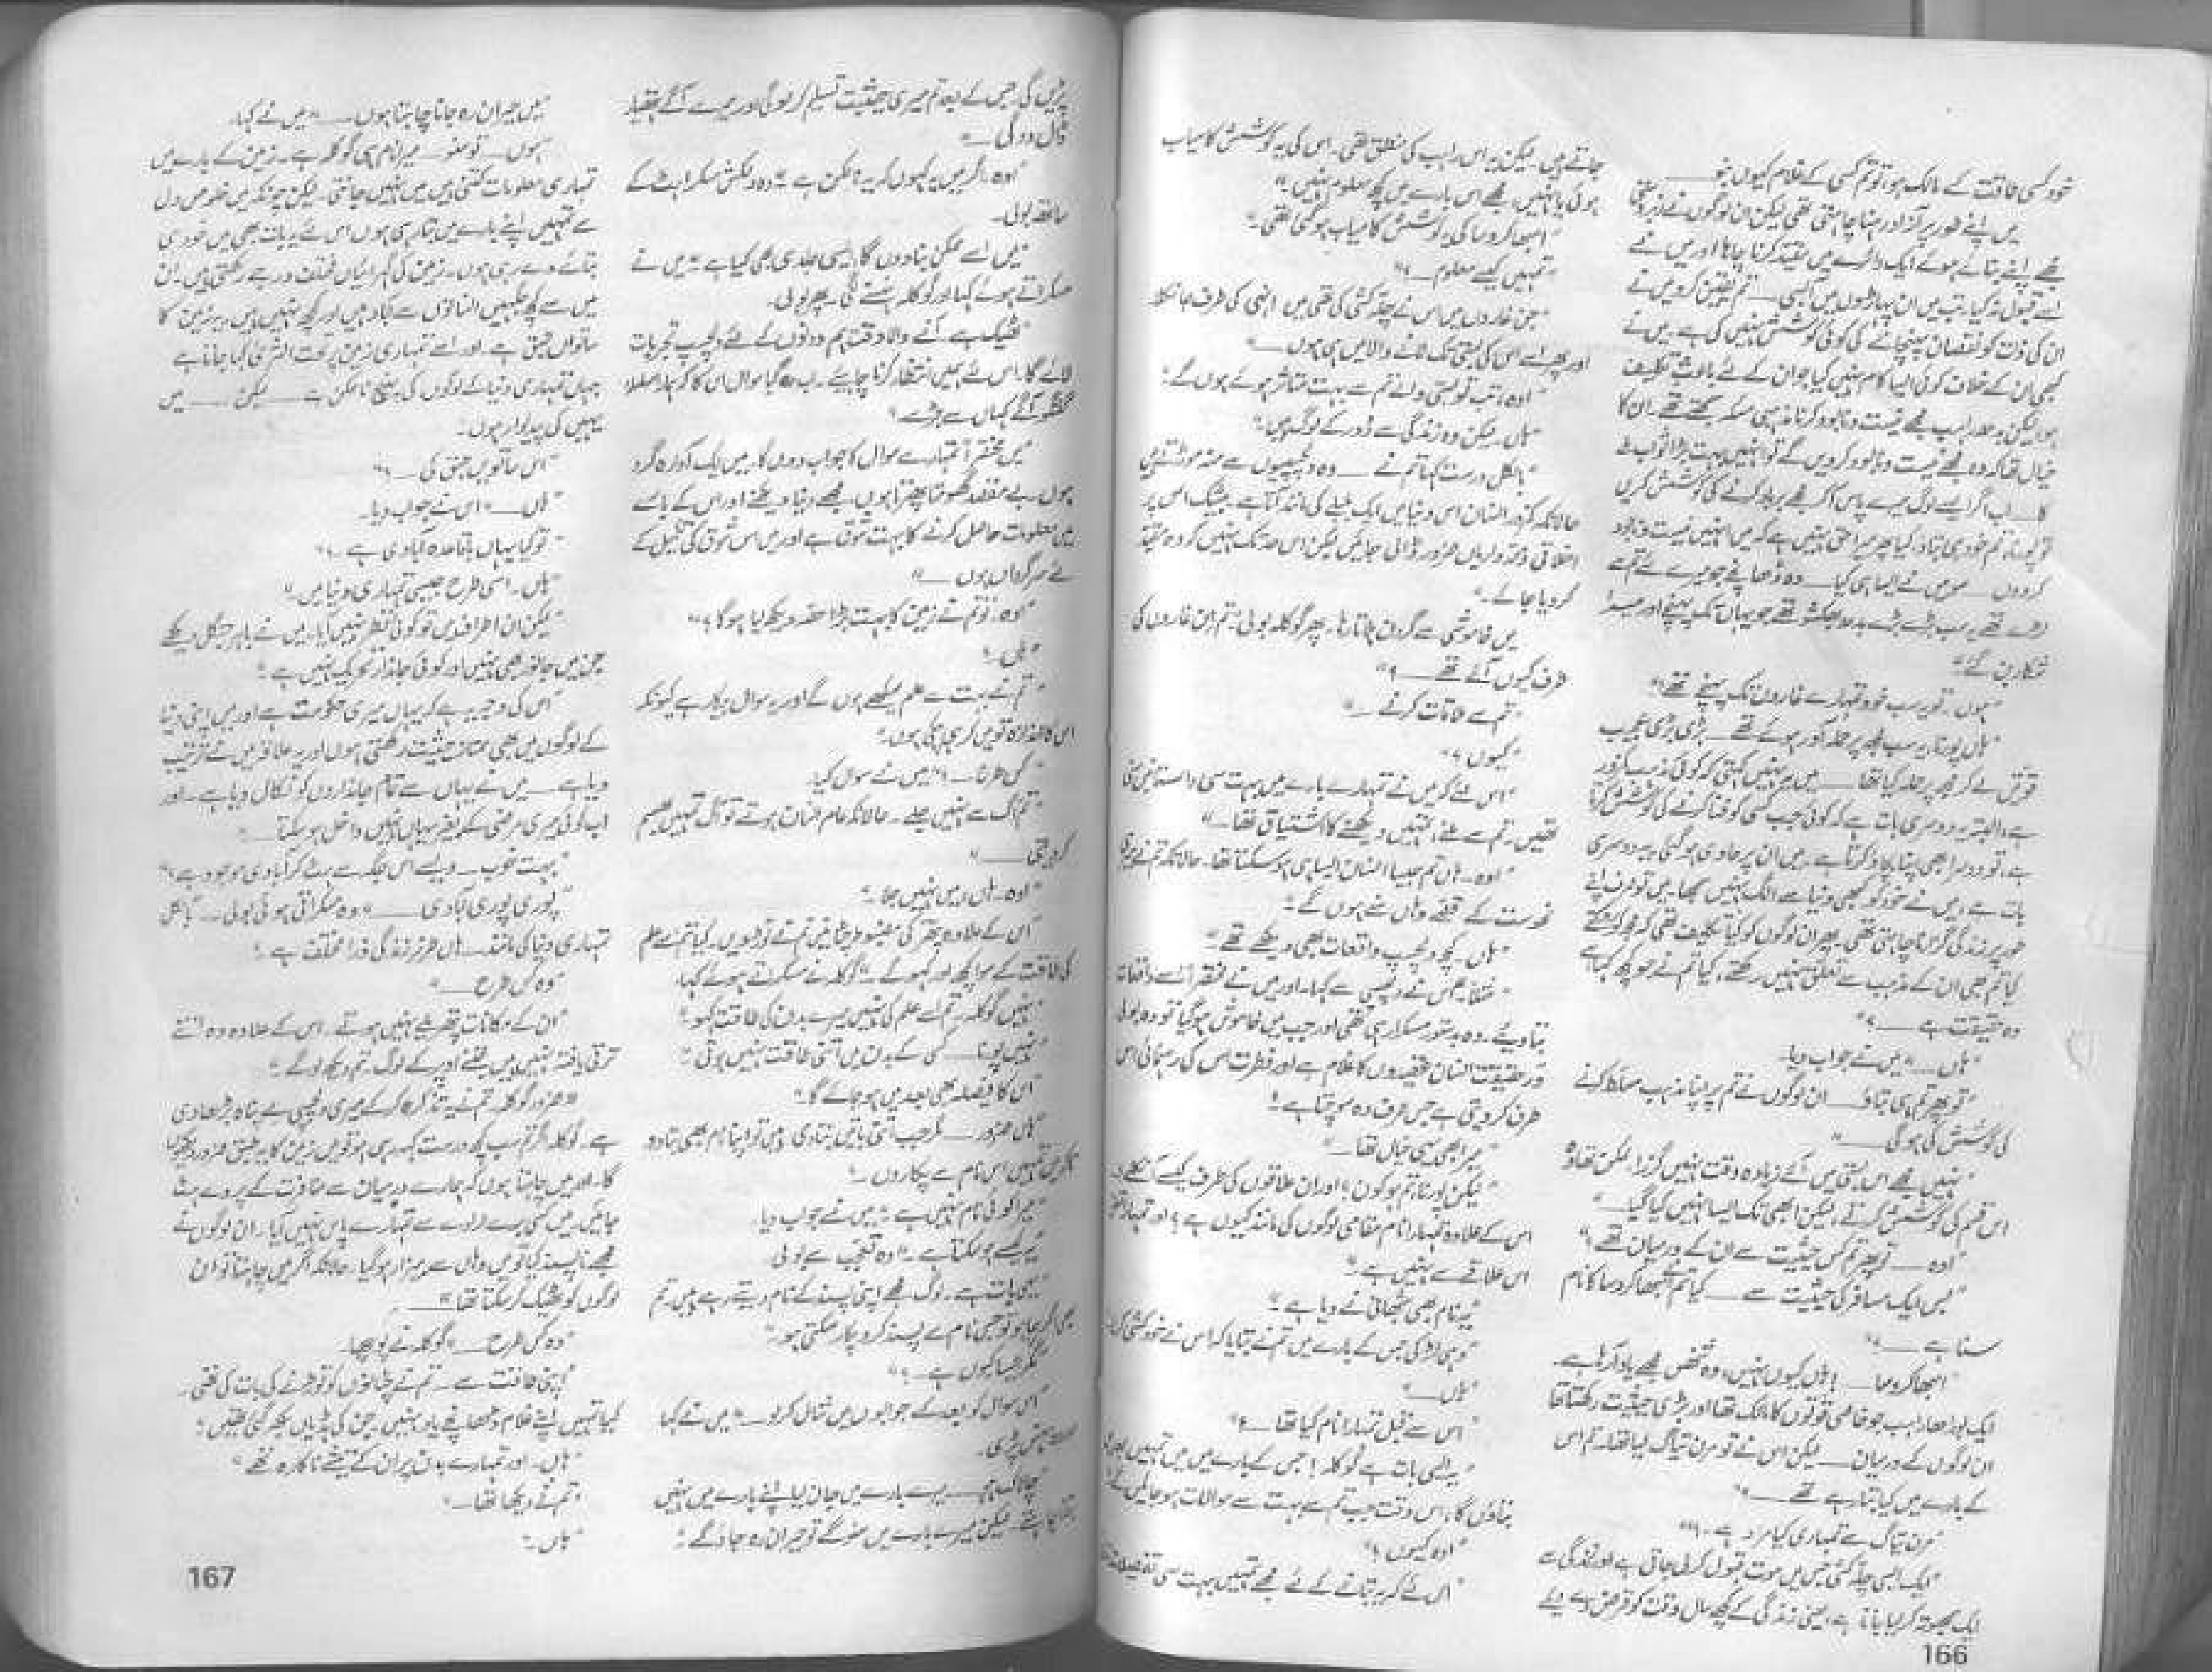 خود کسی طاقت کے مالک ہو، تو تم کسی کے غلام کیوں بنو
میں اپنے طور پر آزاد رہنا چاہتی تھی لیکن ان لوگوں نے زبردستی
مجھے اپنے بنائے ہوئے ایک دائرے میں مقید کرنا چاہا اور میں نے
اسے قبول نہ کیا۔ تب میں ان پہاڑوں میں آ بسی ــــ تم یقین کرو میں نے
ان کی ذات کو نقصان پہنچانے کی کوئی کوشش نہیں کی ہے۔ میں نے
کبھی ان کے خلاف کوئی ایسا کام نہیں کیا جو ان کے لئے باعث تکلیف
ہو لیکن وہ راہب مجھے نیست و نابود کرنا مذہبی مسئلہ سمجھتے تھے۔ ان کا
خیال تھا کہ وہ مجھے نیست و نابود کر دیں گے تو انہیں بہت بڑا ثواب ملے
گا ــــ اب اگر ایسے لوگ میرے پاس آ کر مجھے برباد کرنے کی کوشش کریں
تو پورنا، تم خود ہی بتاؤ، کیا پھر میرا حق نہیں ہے کہ میں انہیں نیست و نابود
کر دوں ــــ سو میں نے ایسا ہی کیا ــــ وہ ڈھانچے جو میرے لئے تم سے
لڑے تھے یہ سب بڑے بڑے بدھ بھکشو تھے جو یہاں تک پہنچے اور میرا
شکار بن گئے۔"
"ہوں۔ تو یہ سب خود تمہارے غاروں تک پہنچے تھے؟"
"ہاں پورنا، یہ سب مجھ پر حملہ آور ہوئے تھے ــــ بڑی بڑی عجیب
قوتیں لے کر مجھ پر حملہ کیا تھا ــــ میں یہ نہیں کہتی کہ کوئی مذہب کمزور
ہے، البتہ یہ دوسری بات ہے کہ کوئی جب کسی کو فنا کرنے کی کوشش کرتا
ہے، تو دوسرا بھی اپنا بچاؤ کرتا ہے۔ میں ان پر حاوی ہو گئی یہ دوسری
بات ہے۔ میں نے خود کو کبھی دنیا سے الگ نہیں سمجھا۔ میں تو صرف اپنے
طور پر زندگی گزارنا چاہتی تھی۔ پھر ان لوگوں کو کیا تکلیف تھی
کیا تم بھی ان کے مذہب سے تعلق نہیں رکھتے، کیا تم نے جو کچھ کہا ہے
وہ حقیقت ہے ــــ ؟"
"ہاں ــــ" میں نے جواب دیا۔
"تو پھر تم ہی بتاؤ ــــ ان لوگوں نے تم پر اپنا مذہب مسلط کرنے
کی کوشش کی ہوگی ــــ"
"نہیں مجھے اس بستی میں آئے زیادہ وقت نہیں گزرا۔ ممکن تھا وہ
اس قسم کی کوشش کرتے، لیکن ابھی تک ایسا نہیں کیا گیا۔"
"اوہ ــــ تو پھر تم کس حیثیت سے ان کے درمیان تھے؟"
"بس ایک مسافر کی حیثیت سے ــــ کیا تم نے اسبھا کروسا کا نام
سنا ہے ــــ؟"
"اسبھا کروسا ــــ ہاں کیوں نہیں، وہ شخص مجھے یاد آ رہا ہے۔
ایک بوڑھا راہب جو خاصی قوتوں کا مالک تھا اور بڑی حیثیت رکھتا تھا
ان لوگوں کے درمیان ــــ لیکن اس نے تو مرن تیاگ لیا تھا۔ تم اس
کے بارے میں کیا بتا رہے تھے ــــ؟"
"مرن تیاگ سے تمہاری کیا مراد ہے۔؟"
"ایک ایسی چلّہ کشی جس میں موت قبول کر لی جاتی ہے اور زندگی سے
ایک سمجھوتہ کر لیا جاتا ہے، یعنی زندگی کے کچھ سال وقت کو قرض دے دیئے
جاتے ہیں۔ لیکن یہ اس راہب کی منطق تھی۔ اس کی یہ کوشش کامیاب
ہوئی یا نہیں، مجھے اس بارے میں کچھ معلوم نہیں۔"
"اسبھا کروسا کی یہ کوشش کامیاب ہو گئی تھی۔"
"تمہیں کیسے معلوم ــــ؟"
"جن غاروں میں اس نے چلّہ کشی کی تھی میں انہی کی طرف جا نکلا
اور پھر اسے اس کی بستی تک لانے والا میں ہی ہوں ــــ"
"اوہ، تب تو بستی والے تم سے بہت متاثر ہوئے ہوں گے؟"
"ہاں۔ لیکن وہ زندگی سے دور کے لوگ ہیں۔"
"بالکل درست کہا تم نے ــــ وہ دلچسپیوں سے منہ موڑتے ہیں
حالانکہ کمزور انسان اس دنیا میں ایک بلبلے کی مانند آتا ہے۔ بیشک اس پر
اخلاقی ذمہ داریاں ضرور ڈالی جائیں لیکن اس حد تک نہیں کہ وہ مقید
کر دیا جائے۔"
میں خاموشی سے گردن ہلاتا رہا۔ پھر گوکلہ بولی۔ "تم ان غاروں کی
طرف کیوں آئے تھے ــــ؟"
"تم سے ملاقات کرنے ــــ"
"کیوں؟"
"اس لئے کہ میں نے تمہارے بارے میں بہت سی داستانیں سنی
تھیں۔ تم سے ملنے، تمہیں دیکھنے کا اشتیاق تھا۔"
"اوہ۔ ہاں تم جیسا انسان ایسا ہی ہو سکتا تھا۔ حالانکہ تم نے میری
نحوست کے قصے وہاں سنے ہوں گے؟"
"ہاں۔ کچھ دلچسپ واقعات بھی دیکھے تھے۔"
"مثلاً؟" اس نے دلچسپی سے کہا۔ اور میں نے مختصراً اسے واقعات
بتا دیئے۔ وہ بدستور مسکرا رہی تھی اور جب میں خاموش ہو گیا تو وہ بولی
"درحقیقت انسان عقیدوں کا غلام ہے اور فطرت اس کی رہنمائی اس
طرف کر دیتی ہے جس طرف وہ سوچتا ہے۔"
"میرا بھی یہی خیال تھا۔"
"لیکن پورنا، تم ہو کون؟ اور ان علاقوں کی طرف کیسے آ نکلے؟
اس کے علاوہ تمہارا نام مقامی لوگوں کی مانند کیوں ہے؟ اور تمہارا تعلق
اس علاقے سے نہیں ہے۔"
"یہ نام بھی سمھانی نے دیا ہے۔"
"وہی لڑکی جس کے بارے میں تم نے بتایا کہ اس نے خودکشی کر لی
"ہاں ــــ"
"اس سے قبل تمہارا نام کیا تھا ــــ؟"
"یہ ایسی بات ہے گوکلہ! جس کے بارے میں میں تمہیں بعد میں
بتاؤں گا، اس وقت جب تم سے بہت سے سوالات ہو جائیں گے۔
"اوہ کیوں؟"
"اس لئے کہ یہ بتانے کے لئے مجھے تمہیں بہت سی تفصیلات
166
پڑیں گی۔ جس کے بعد تم میری حیثیت تسلیم کر لو گی اور میرے آگے ہتھیار
ڈال دو گی ــــ"
"اوہ، اگر میں یہ کہوں کہ یہ ناممکن ہے۔" وہ دلکش مسکراہٹ کے
ساتھ بولی۔
"میں اسے ممکن بنا دوں گا، ایسی جلدی بھی کیا ہے۔" میں نے
مسکراتے ہوئے کہا اور گوکلہ ہنسنے لگی۔ پھر بولی۔
"ٹھیک ہے آنے والا وقت ہم دونوں کے لئے دلچسپ تجربات
لائے گا۔ اس لئے ہمیں انتظار کرنا چاہیئے۔ اب رہ گیا سوال اس کا کہ ہمارا سلسلہ
گفتگو آگے کہاں سے بڑھے؟
"میں مختصراً تمہارے سوال کا جواب دوں گا۔ میں ایک آوارہ گرد
ہوں۔ بے مقصد گھومتا پھرتا ہوں۔ مجھے دنیا دیکھنے اور اس کے بارے
میں معلومات حاصل کرنے کا بہت شوق ہے اور میں اس شوق کی تکمیل کے
لئے سرگرداں ہوں ــــ"
"اوہ۔ تو تم نے زمین کا بہت بڑا حصہ دیکھ لیا ہوگا؟"
"ہاں۔"
"تم نے بہت سے علم سیکھے ہوں گے اور یہ سوال بیکار ہے کیونکہ
اس کا اندازہ تو میں کر ہی چکی ہوں۔"
"کس طرح ــــ؟" میں نے سوال کیا۔
"تم آگ سے نہیں جلے۔ حالانکہ عام انسان ہوتے تو آگ تمہیں بھسم
کر دیتی ــــ"
"اوہ۔ ہاں۔ میں نہیں جلا۔"
"اس کے علاوہ پتھر کی مضبوط چٹانیں تم نے توڑ دیں۔ کیا تم اسے علم
کی طاقت کے سوا کچھ اور کہو گے۔" گوکلہ نے مسکراتے ہوئے کہا۔
"نہیں گوکلہ۔ تم اسے علم کی نہیں میرے بدن کی طاقت کہو۔"
"نہیں پورنا ــــ کسی کے بدن میں اتنی طاقت نہیں ہوتی۔"
"اس کا فیصلہ بھی بعد میں ہو جائے گا۔"
"ہاں ضرور ــــ مگر جب اتنی باتیں بتا دی ہیں تو اپنا نام بھی بتا دو
تاکہ میں تمہیں اس نام سے پکاروں۔"
"میرا کوئی نام نہیں ہے۔" میں نے جواب دیا۔
"یہ کیسے ہو سکتا ہے۔" وہ تعجب سے بولی
"یہی بات ہے۔ لوگ مجھے اپنی پسند کے نام دیتے رہے ہیں۔ تم
بھی اگر چاہو تو جس نام سے پسند کرو پکار سکتی ہو۔"
"مگر ایسا کیوں ہے ــــ؟"
"اس سوال کو بعد کے جوابوں میں شامل کر لو ــــ" میں نے کہا
اور وہ ہنس پڑی۔
"چالاک ہو ــــ میرے بارے میں جان لیا اپنے بارے میں نہیں
بتانا چاہتے۔ لیکن میرے بارے میں سنو گے تو حیران رہ جاؤ گے۔"
"میں حیران رہ جانا چاہتا ہوں ــــ" میں نے کہا۔
"ہوں ــــ تو سنو ــــ میرا نام ہی گوکلہ ہے۔ زمین کے بارے میں
تمہاری معلومات کتنی ہیں میں نہیں جانتی۔ لیکن چونکہ میں خلوص دل
سے تمہیں اپنے بارے میں بتا رہی ہوں اس لئے یہ بات بھی میں خود ہی
بتائے دے رہی ہوں۔ زمین کی گہرائیاں مختلف درجے رکھتی ہیں۔ ان
میں سے کچھ جگہیں انسانوں سے آباد ہیں اور کچھ نہیں ہیں۔ یہ زمین کا
ساتواں طبق ہے۔ اور اسے تمہاری زمین پر تحت الثریٰ کہا جاتا ہے
جہاں تمہاری دنیا کے لوگوں کی پہنچ ناممکن ہے ــــ لیکن ــــ میں
یہیں کی پیداوار ہوں۔
"اس ساتویں طبق کی ــــ؟"
"ہاں ــــ" اس نے جواب دیا۔
"تو کیا یہاں باقاعدہ آبادی ہے ــــ؟"
"ہاں۔ اسی طرح جیسی تمہاری دنیا میں۔"
"لیکن ان اطراف میں تو کوئی نظر نہیں آیا۔ میں نے باہر جنگل دیکھے
جن میں جانور بھی نہیں اور کوئی جاندار تحریک نہیں ہے۔"
"اس کی وجہ یہ ہے کہ یہاں میری حکومت ہے اور میں اپنی دنیا
کے لوگوں میں بھی ممتاز حیثیت رکھتی ہوں اور یہ علاقہ میں نے ترتیب
دیا ہے ــــ میں نے یہاں سے تمام جانداروں کو نکال دیا ہے ــــ اور
اب کوئی میری مرضی کے بغیر یہاں نہیں داخل ہو سکتا ــــ"
"بہت خوب ــــ ویسے اس جگہ سے ہٹ کر آبادی موجود ہے؟"
"پوری پوری آبادی ــــ" وہ مسکراتی ہوئی بولی ــــ "بالکل
تمہاری دنیا کی مانند ــــ ہاں طرز زندگی ذرا مختلف ہے۔"
"وہ کس طرح ــــ"
"ان کے مکانات پتھریلے نہیں ہوتے۔ اس کے علاوہ وہ اتنے
ترقی یافتہ نہیں ہیں جتنے اوپر کے لوگ۔ تم دیکھ لو گے۔"
"ضرور گوکلہ۔ تم نے یہ تذکرہ کر کے میری دلچسپی بے پناہ بڑھا دی
ہے۔ گوکلہ اگر تم سب کچھ درست کہہ رہی ہو تو میں زمین کا یہ طبق ضرور دیکھوں
گا۔ اور میں چاہتا ہوں کہ ہمارے درمیان سے منافرت کے پردے ہٹ
جائیں۔ میں کسی برے ارادے سے تمہارے پاس نہیں آیا۔ ان لوگوں نے
مجھے ناپسند کیا تو میں وہاں سے بیزار ہو گیا۔ حالانکہ اگر میں چاہتا تو ان
لوگوں کو ٹھیک کر سکتا تھا ــــ"
"وہ کس طرح ــــ" گوکلہ نے پوچھا۔
"اپنی طاقت سے ــــ تم نے چٹانوں کو توڑنے کی بات کی تھی۔
کیا تمہیں اپنے غلام ڈھانچے یاد نہیں۔ جن کی ہڈیاں بکھر گئی تھیں؟
"ہاں۔ اور تمہارے بدن پر ان کے تیشے ناکارہ تھے"
"تم نے دیکھا تھا ــــ"
"ہاں۔"
167